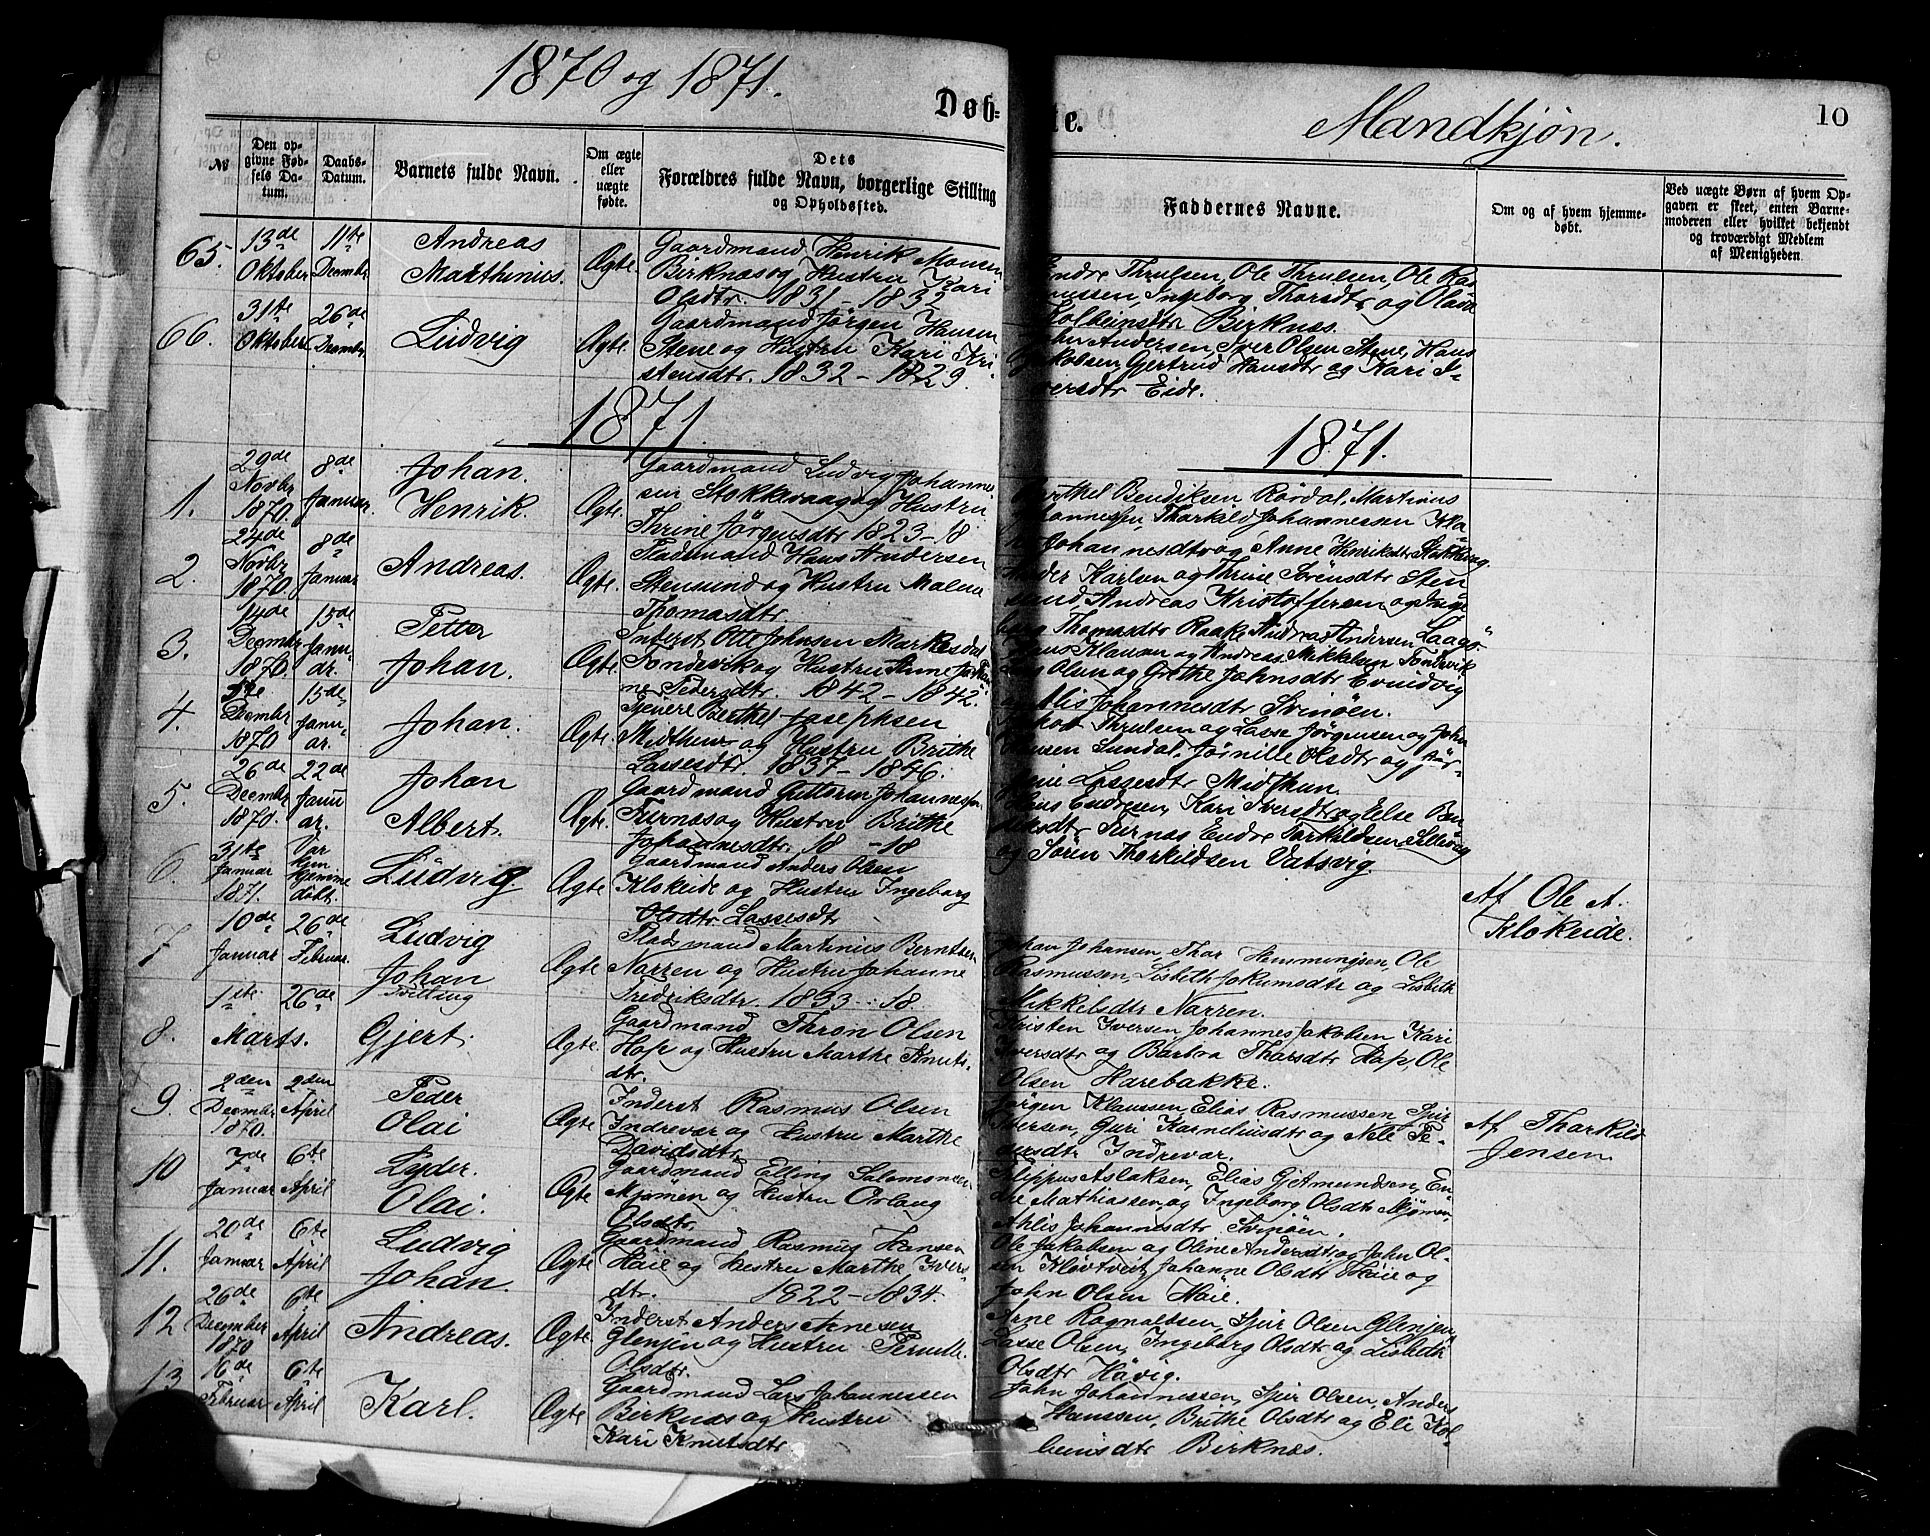 1870 og 1871.
Døb-
te.
Mandkjøn.
10
№
Den op-
givne Fød-
sels Da-
tum.
Daabs-
Datum.
Barnets fulde Navn.
Om ægte
eller
uægte
fødte.
Dets
Forældres fulde Navn, borgerlige Stilling
og Opholdssted.
Faddernes Navne.
Om og af hvem hjemme-
døbt.
Ved uægte Børn af hvem Op-
gaven er skeet, enten Barne-
moderen eller hvilket bekjendt
og troværdigt Medlem
af Menigheden.
65.
13de
Oktober
11te
Decmbr.
Andreas
Matthinius.
Ægte.
Gaardmand Henrik Monsen
Birknæs og Hustru Kari
Olsdtr. 1831 - 1832
Endre Thrulsen, Ole Thrulsen, Ole Ras-
mussen, Ingeborg Thorsdtr og Olava
Kolbeinsdtr Birknæs.
66.
31te
Oktober
26de
Decmbr.
Ludvig
Ægte.
Gaardmand Jørgen Hansen
Stene og Hustru Kari Kri-
stensdtr. 1832 - 1829.
John Andersen, Iver Olsen Stene, Hans
Jakobsen, Gjertrud Hansdtr og Kari I-
versdtr Eide.
1871.
1871.
1.
29de
Novbr
1870.
8de
Januar.
Johan.
Henrik.
Ægte.
Gaardmand Ludvig Johannes-
sen Stokkevaag og Hustru
Thrine Jørgensdtr 1823 - 18
Berthel Bendiksen Rørdal, Martinus
Johannessen, Thorkild Johannessen, Ka-
Johannesdtr og Anne Henriksdtr Stokkevaag.
2.
24de
Novbr
1870.
8de
Januar
Andreas.
Ægte.
Pladsmand Hans Andersen
Stensund og Hustru Malene
Thomasdtr.
Peder Karlsen og Thrine Sørensdtr Sten-
sund, Andreas Kristoffersen og Inge-
borg Thomasdtr Raake, Andreas Andersen Laagø
3.
14de
Decmbr
1870.
15de
Janu-
ar.
Petter
Johan.
Ægte
Inderst Otto Johnsen Markesdal
Tondevik og Hustru Anne
Pedersdtr. 1842 - 1842.
Hans Klausen og Andreas Mikkelsen Tondevik
Olsen og Grethe Johnsdtr Evindvig
Alis Johannesdtr Svinøen.
4.
Decmbr
1870
15de
Janu-
ar.
Johan.
Ægte.
Tjenere Berthel Josephsen
Midthun og Hustru Brithe
Lassesdtr. 1837 - 1846.
Thrulsen og Lasse Jørgensen og John
Olsen Sundal, Jørnille Olsdtr og Jør-
Lassesdtr Midthun.
5.
26de
Decmbr
1870.
22de
Janu-
ar.
Johan
Albert.
Ægte.
Gaardmand Guttorm Johannessen
Furnæs og Hustru Brithe
Johannesdtr. 18 - 18
Hans Endresen, Kari Iversdtr og Else Ben-
diksdtr Furnæs, Endre Torkildsen
og Søren Thorkildsen Vatsvig.
6.
31te
Januar
1871.
Var
hjemme
døbt.
Ludvig.
Ægte
Gaardmand Anders Olsen
Klokeide og Hustru Ingeborg
Olsdtr. Lassesdtr
Af Ole A.
Klokeide.
7
10de
Januar
26de
Februar.
Ludvig
Johan
Ægte
Pladsmand Martinus Berntsen
Narren og Hustru Johanne
Fredriksdtr. 1833 - 18.
Johan Johansen, Thor Hemmingsen, Ole
Rasmussen, Lisbeth Jokumsdtr og Lisbeth
Mikkelsdtr Narren.
8.
1ste
Marts.
26de
Tvilling
Gjert.
Ægte.
Gaardmand Thron Olsen
Hop og Hustru Marthe Knuts-
dtr.
Kristen Iversen, Johannes Jakobsen, Kari
Iversdtr og Barbra Thorsdtr Hop, Ole
Olsen Harebakke.
9.
2den
Decmbr
1870.
2den
April
Peder
Olai
Ægte
Inderst Rasmus Olsen
Indrevær og Hustru Marthe
Davidsdtr.
Jørgen Klaussen, Elias Rasmussen, Sjur
Petersen, Guri Korneliusdtr og Nele Pe-
dersdtr Indrevær.
Af Thorkild
Jensen
10
7de
Januar
6te
April
Lyder.
Olai.
Ægte
Gaardmand Elling Salomonsen
Mjømen og Hustru Orlaug
Olsdtr.
Filippus Aslaksen, Elias G. Amundsen, En-
dre Mathiassen og Ingeborg Olsdtr Mjømen,
Ahlis Johannesdtr Svinøen.
11.
20de
Januar
6te
April
Ludvig
Johan.
Ægte
Gaardmand Rasmus Hansen
Høie og Hustru Marthe Ivers-
dtr. 1822 - 1834.
Ole Jakobsen og Oline Andersdtr og John Ol-
sen Kløvtveit, Johanne Olsdtr Høie og
John Olsen Høie.
12
26de
Decmber
1870
6te
April
Andreas.
Ægte
Inderst Anders Arnesen
Glenjen og Hustru Pernille
Olsdtr.
Arne Ragnaldsen, Sjur Olsen Glenjen,
Lasse Olsen, Ingeborg Olsdtr og Lisbeth
Olsdtr Høvig.
13
16de
Februar
6te
April
Karl.
Ægte
Gaardmand Lars Johannessen
Birknæs og Hustru
Kari Knutsdtr
John Johannessen, Sjur Olsen, Anders
Hanssen, Brithe Olsdtr og Eli Kol-
bensdtr Birknæs.